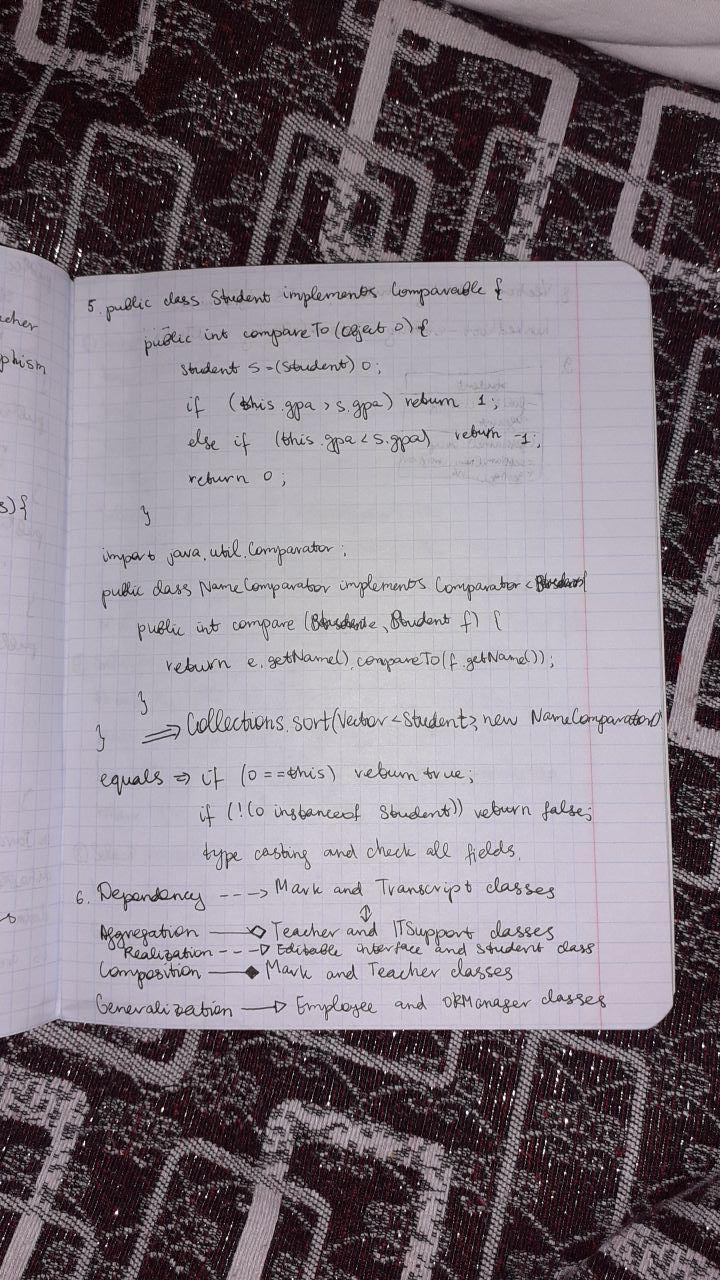 cher
phism
s) {
5. public class Student implements Comparable {
public int compareTo (Object o) {
Student s = (Student) o;
if (this.gpa > s.gpa) return 1;
else if (this.gpa < s.gpa) return -1;
return 0;
}
import java.util.Comparator;
public class NameComparator implements Comparator <
public int compare ( e, Student f) {
return e.getName().compareTo(f.getName());
}
} ⇒ Collections.sort(Vector <Student>, new NameComparator()
equals ⇒ if (o == this) return true;
if (!(o instanceof Student)) return false;
type casting and check all fields.
6. Dependency ---> Mark and Transcript classes
Aggregation —◇ Teacher and ITSupport classes
Realization ---▷ Editable interface and Student class
Composition —◆ Mark and Teacher classes
Generalization —▷ Employee and ORManager classes